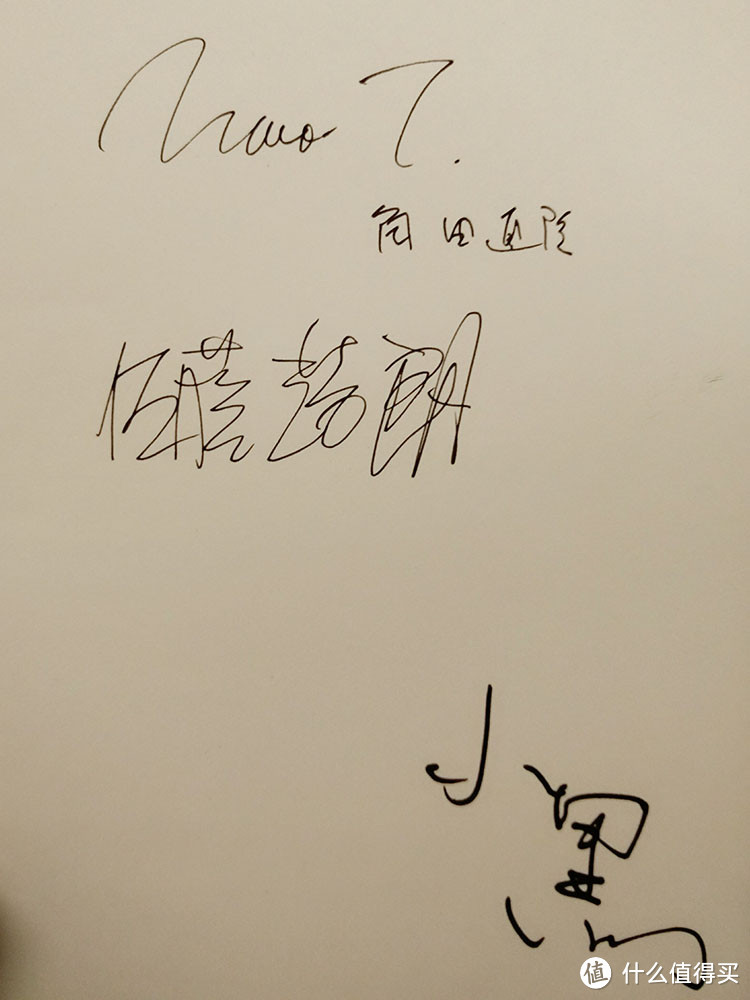 Naao T.
角田直隆
佐藤芳朗
小黑
值 什么值得买